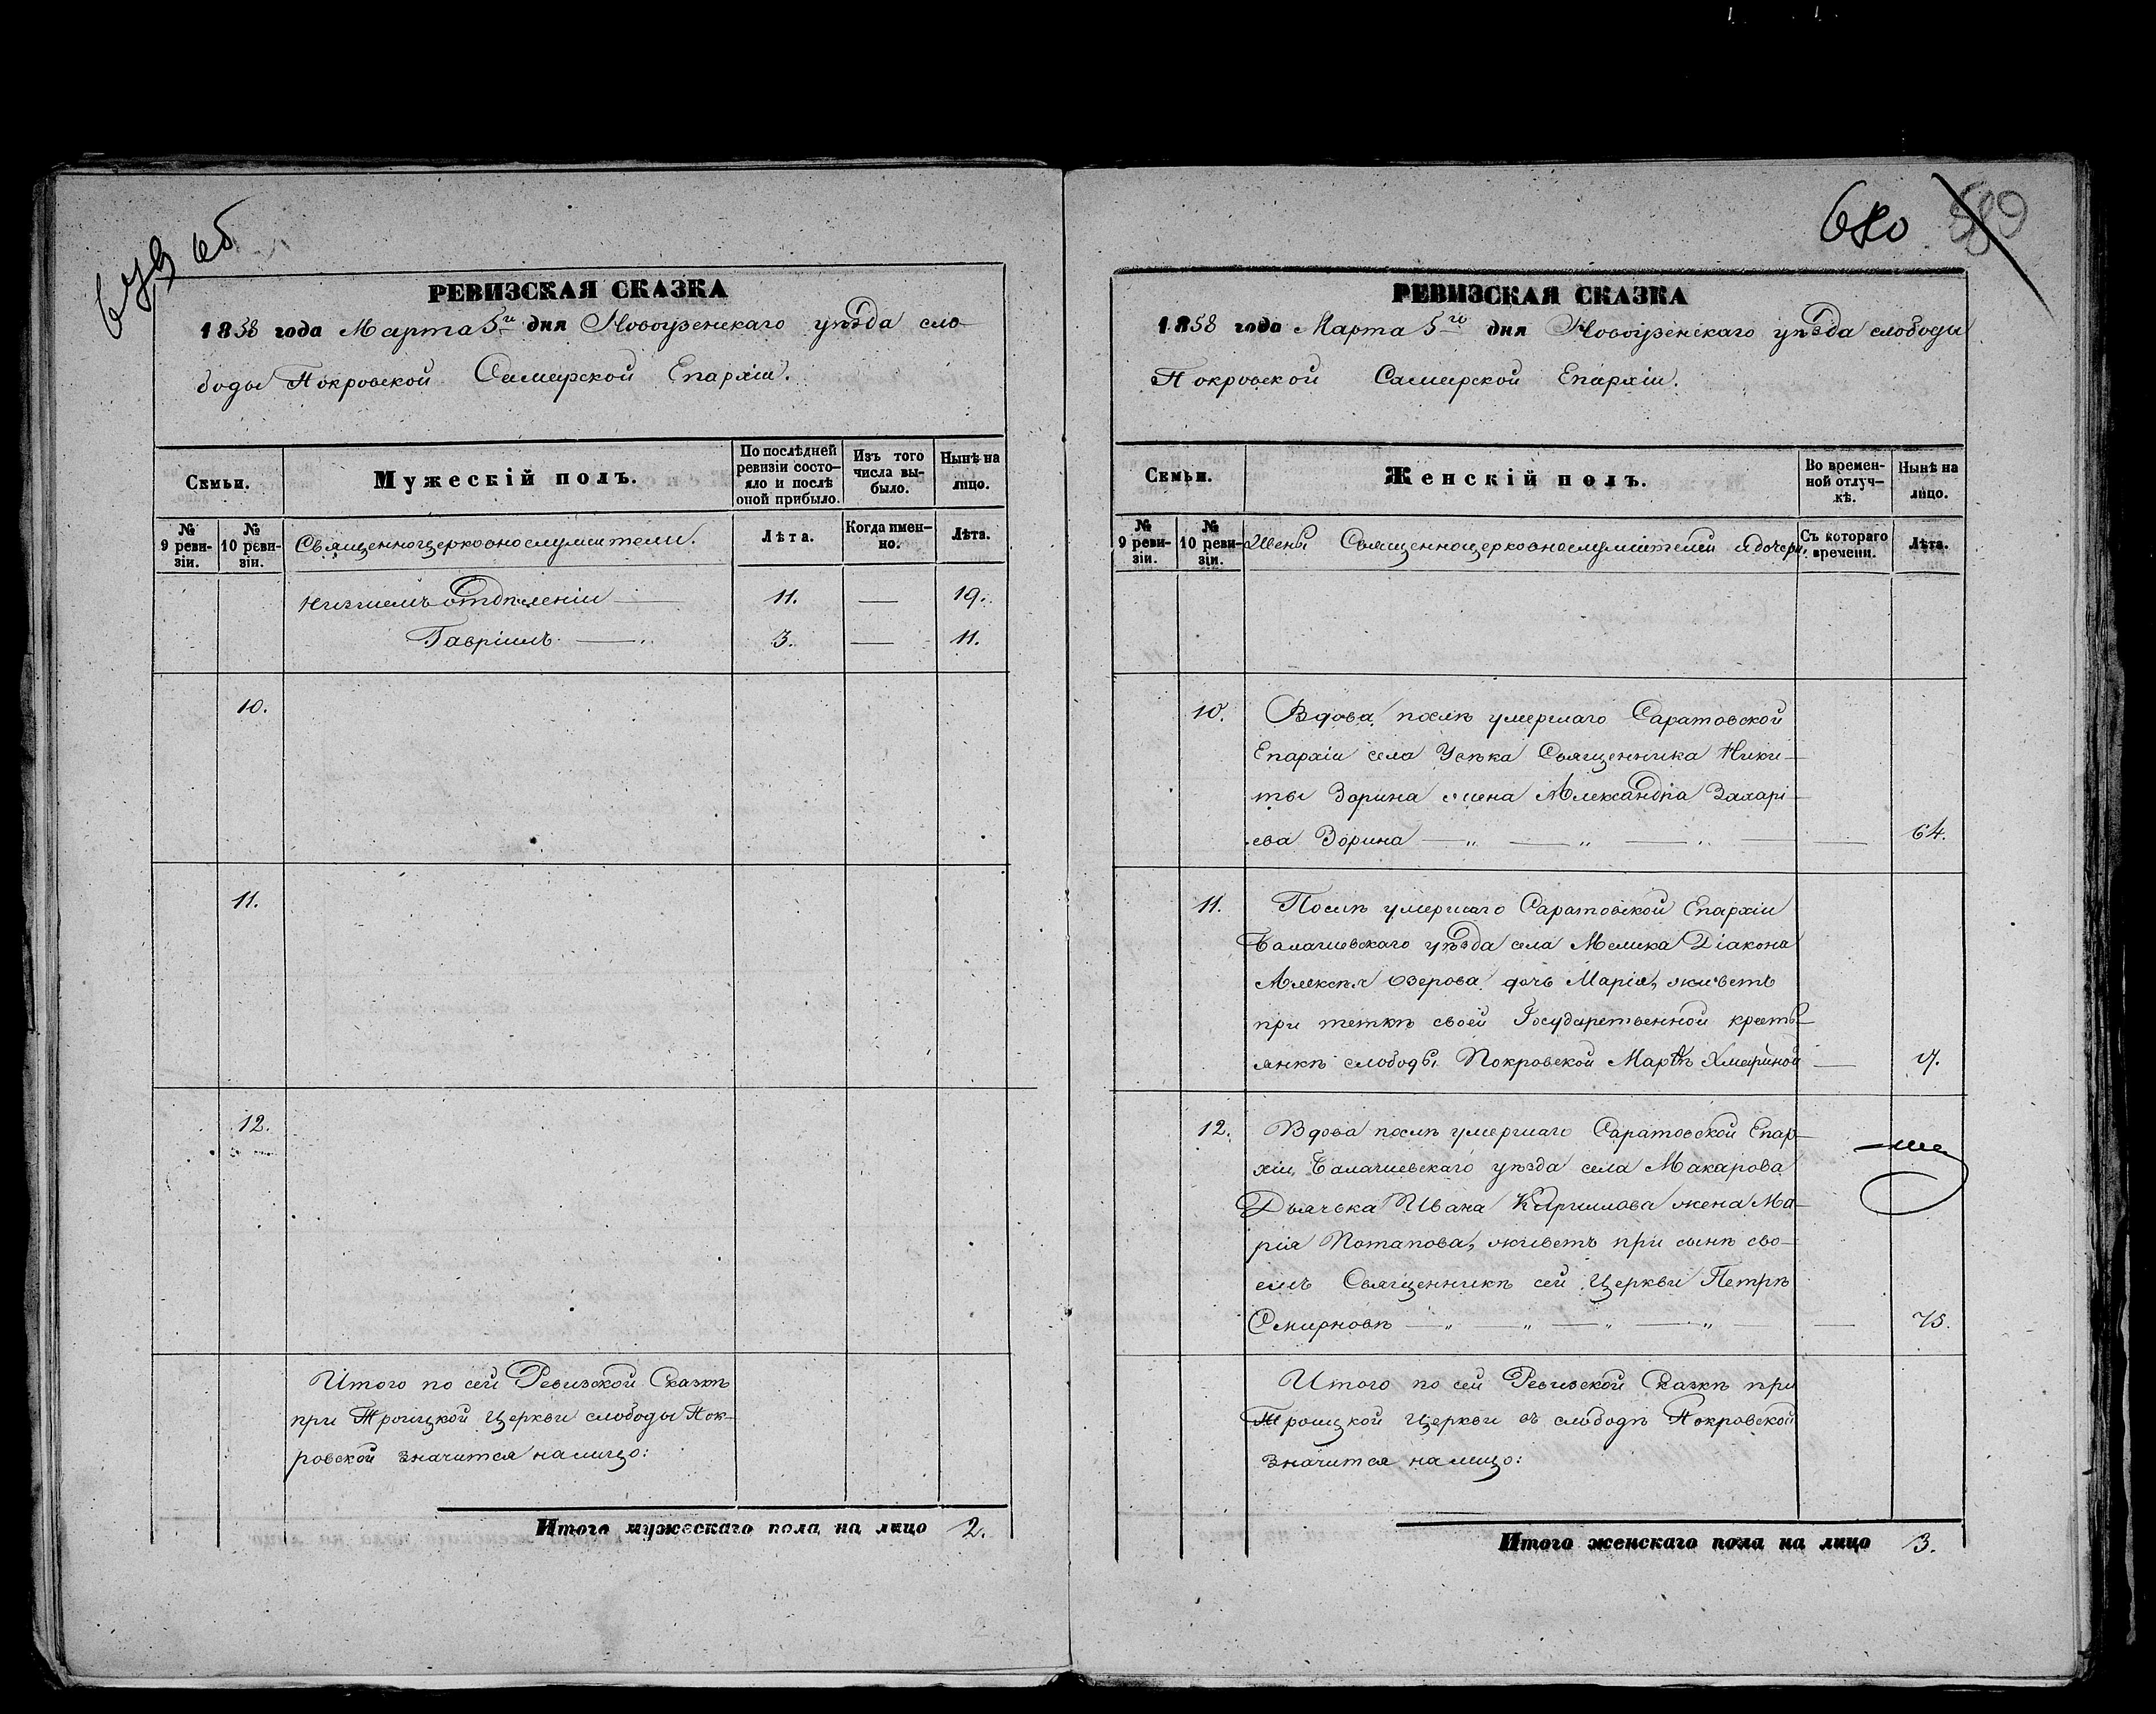 679 об
РЕВИЗСКАЯ СКАЗКА
1858 года Марта 5го дня Новоузенскаго уѣзда сло-
боды Покровской Самарской Епархіи.
Семьи.
Мужескій полъ.
По послѣдней ревизіи состо-яло и послѣ оной прибыло.
Изъ того числа вы-было.
Нынѣ на лицо.
№ 9 реви-зіи.
№ 10 реви-зіи.
Священноцерковнослужители.
Лѣта.
Когда имен-но.
Лѣта.
низшемъ отдѣленіи — 11. — 19.
Гавріилъ — 3. — 11.
10.
11.
12.
Итого по сей Ревизской Сказкѣ
при Троицкой Церкви слободы Пок-
ровской значится налицо:
Итого мужескаго пола на лицо 2.
680 589
РЕВИЗСКАЯ СКАЗКА
1858 года Марта 5го дня Новоузенскаго уѣзда слободы
Покровской Самарской Епархіи.
Семьи.
Женскій полъ.
Во времен-ной отлуч-кѣ.
Нынѣ на лицо.
№ 9 реви-зіи.
№ 10 реви-зіи.
Жены Священноцерковнослужителей и дочери.
Съ котораго времени.
Лѣта.
10. Вдова послѣ умершаго Саратовской
Епархіи села Усѣка Священника Ники-
ты Зорина жена Александра Захарі-
ева Зорина — 64.
11. Послѣ умершаго Саратовской Епархіи
Балашевскаго уѣзда села Мелика Діакона
Алексѣя Озерова дочь Марія, живетъ
при теткѣ своей Государственной кресть-
янкѣ слободы Покровской Марѳѣ Хмариной — 17.
12. Вдова послѣ умершаго Саратовской Епар-
хіи, Балашевскаго уѣзда села Макарова
Дьячька Ивана Кирилова жена Ма-
рія Потапова, живетъ при сынѣ сво-
емъ Священникѣ сей Церкви Петрѣ
Смирновѣ — 75.
Итого по сей Ревизской Сказкѣ при
Троицкой Церкви въ слободѣ Покровской
значится налицо:
Итого женскаго пола на лицо 3.